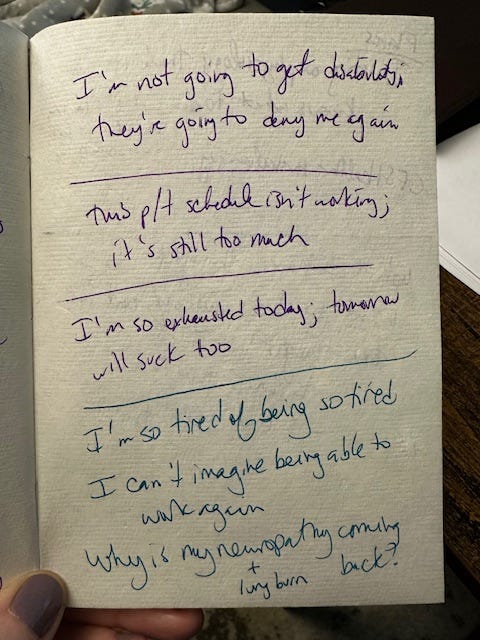 I'm not going to get disability;
they're going to deny me again
This p/t schedule isn't working;
it's still too much
I'm so exhausted today; tomorrow
will suck too
I'm so tired of being so tired
I can't imagine being able to
work again
Why is my neuropathy coming
+ back?
lung burn